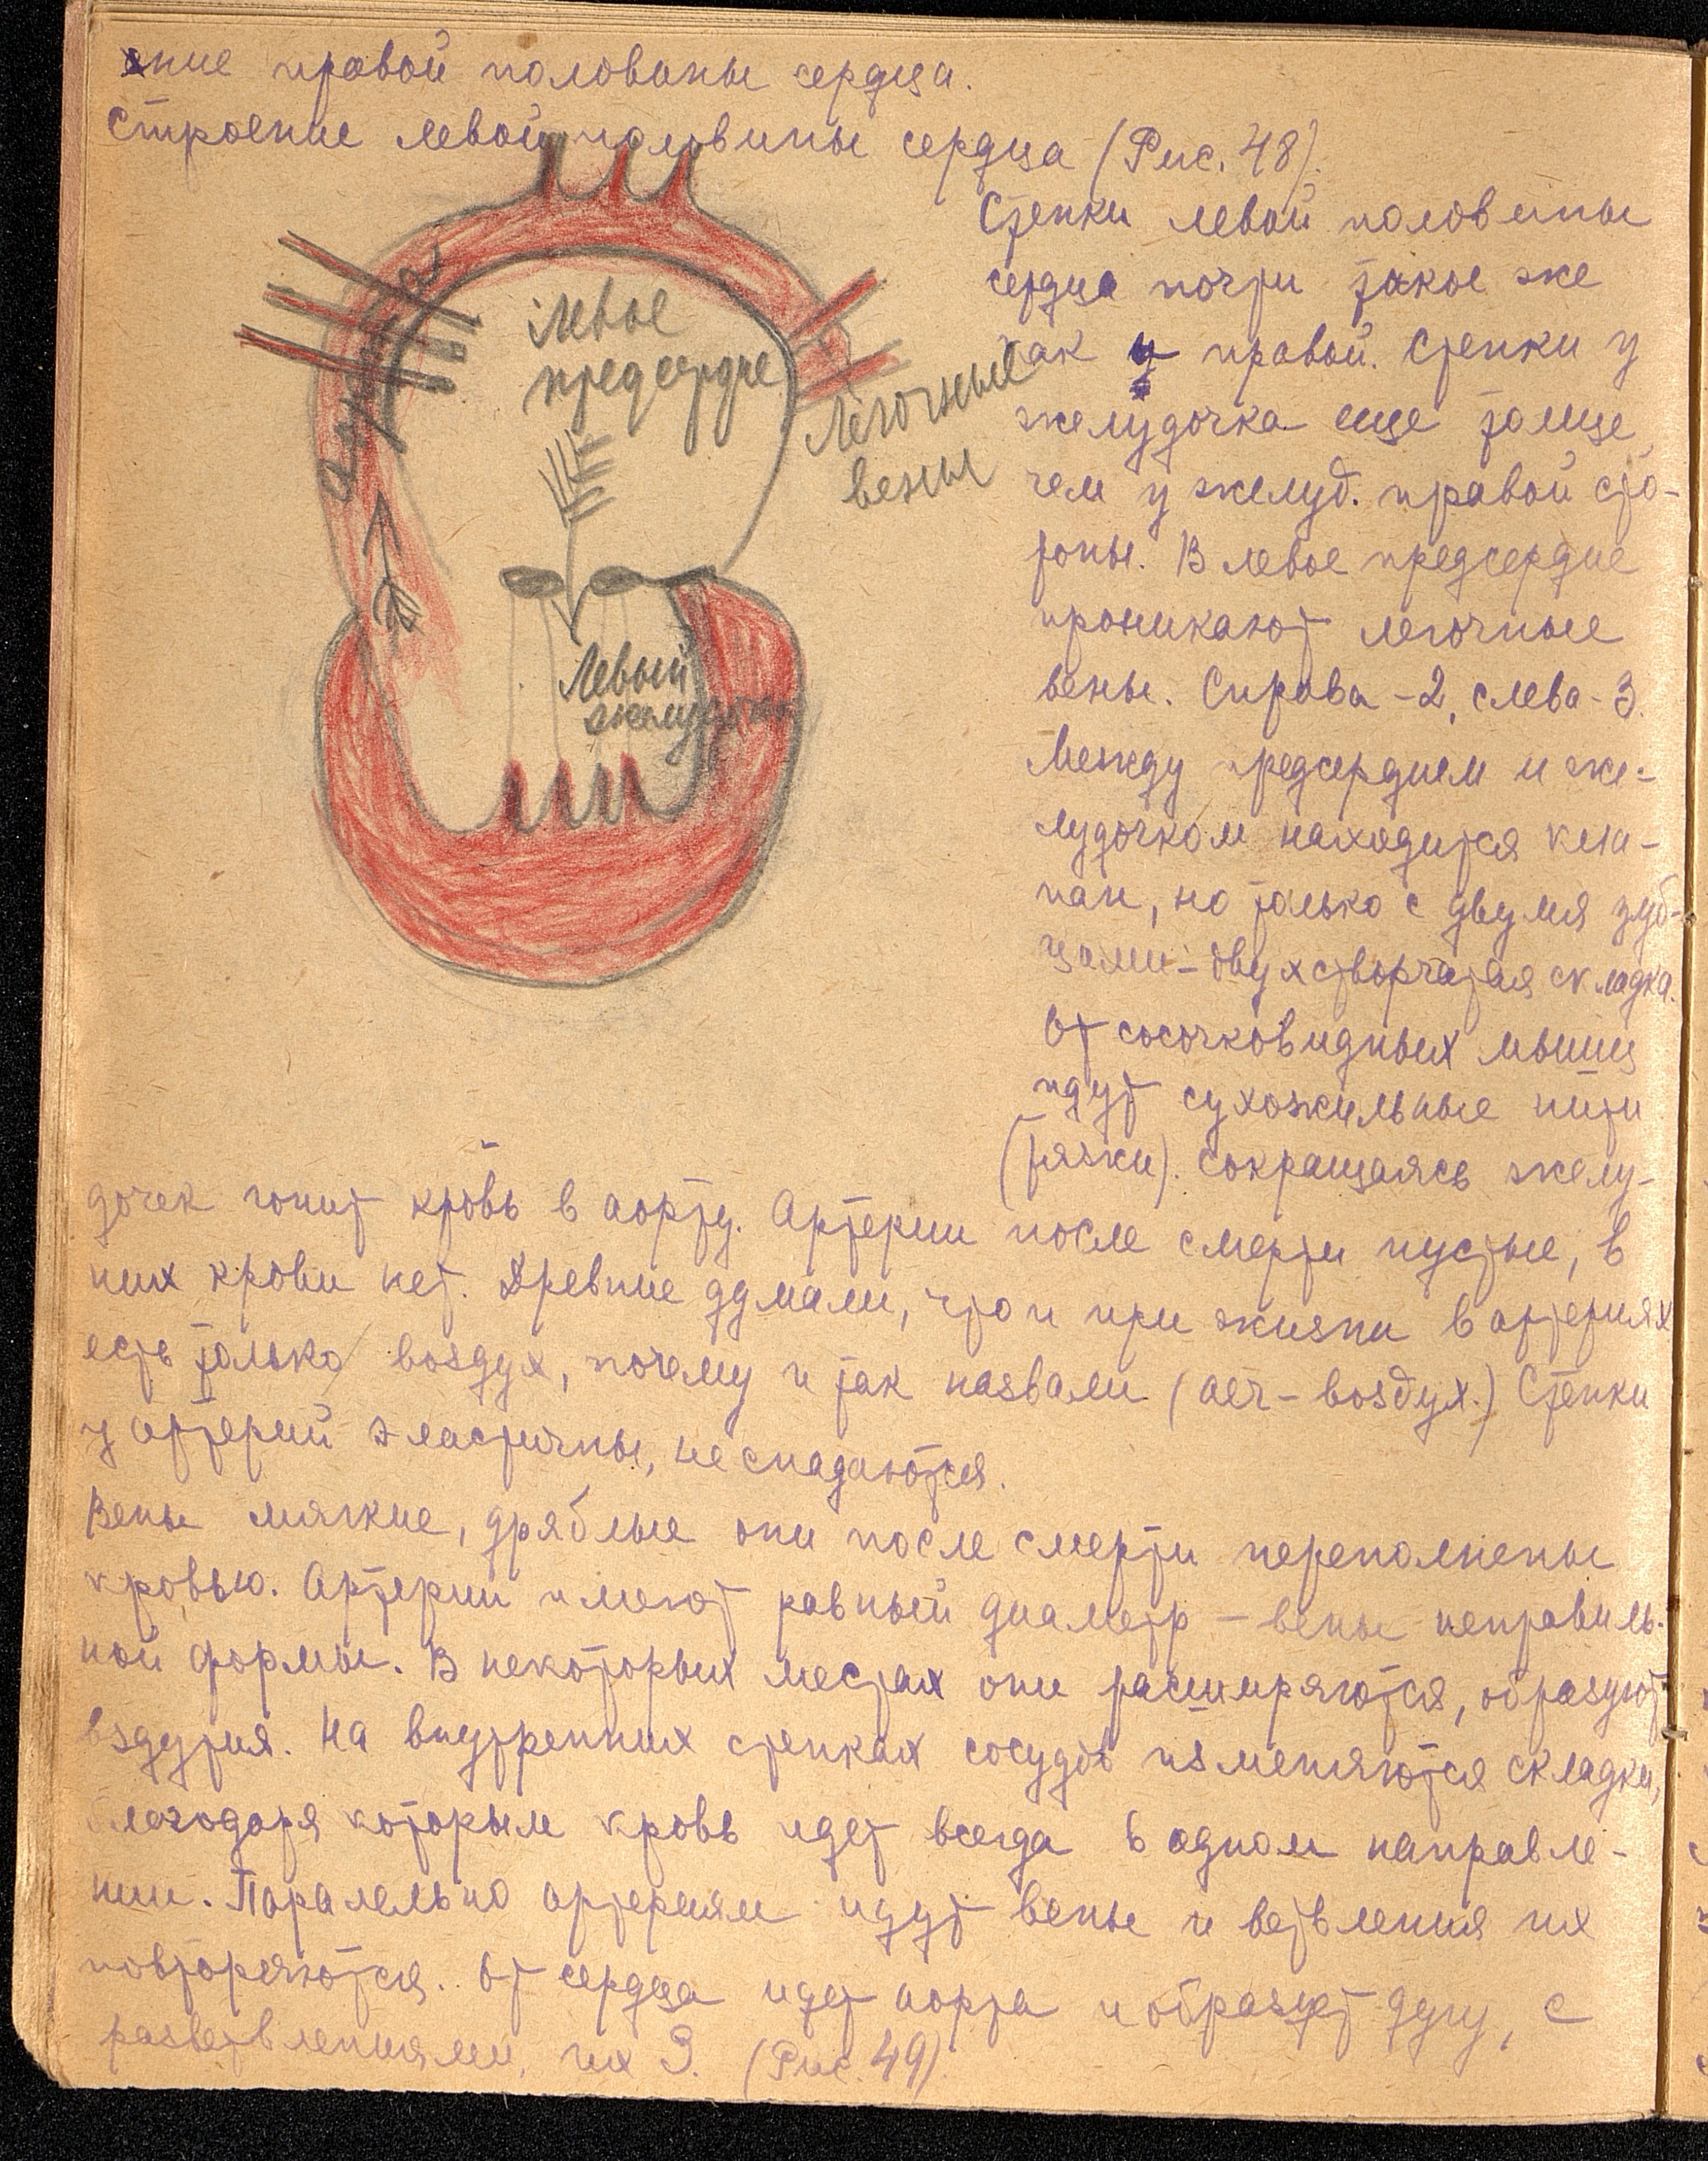 ение правой половины сердца.
Строение левой половины сердца (Рис. 48).
Стенки левой половины
сердца почти такое же
как у правой. Стенки у
желудочка еще толще,
чем у желуд. правой сто-
роны. В левое предсердие
проникают легочные
вены. Справа - 2, слева - 3.
Между предсердием и же-
лудочком находится кла-
пан, но только с двумя зуб-
цами - двухстворчатая складка.
От сосочковидных мышц
идут сухожильные нити
(тяжи). Сокращаясь желу-
дочек гонит кровь в аорту. Артерии после смерти пустые, в
них крови нет. Древние думали, что и при жизни в артериях
есть только воздух, почему и так назвали (aer - воздух.) Стенки
у артерий эластичны, не спадаются.
Вены мягкие, дряблые они после смерти переполнены
кровью. Артерии имеют равный диаметр - вены неправиль-
ной формы. В некоторых местах они расширяются, образуют
вздутия. На внутренних стенках сосудов изменяются складки,
благодоря которым кровь идет всегда в одном направле-
нии. Паралельно артериям идут вены и ветвления их
повторяются. От сердца идет аорта и образует дугу, с
разветвлениями, их 3. (Рис. 49).
Аорта
Левое
предсердие
Легочные
вены
Левый
желудочек